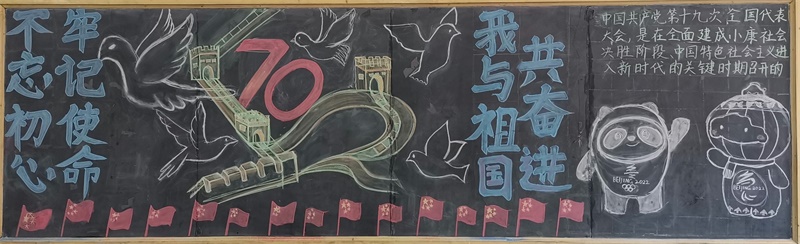 不忘初心
牢记使命
70
我与祖国
共奋进
中国共产党第十九次全国代表
大会,是在全面建成小康社会
决胜阶段、中国特色社会主义进
入新时代的关键时期召开的
BEIJING 2022
BEIJING 2022